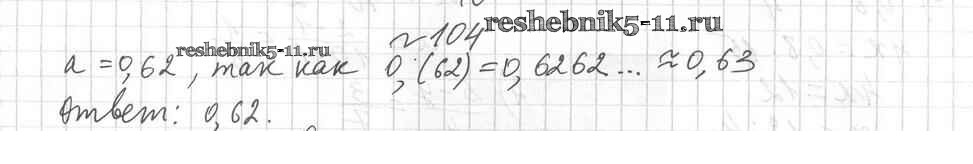 ~104 reshebnik5-11.ru
reshebnik5-11.ru
a = 0,62, так как 0,(62) = 0,6262... ≈ 0,63
Ответ: 0,62.